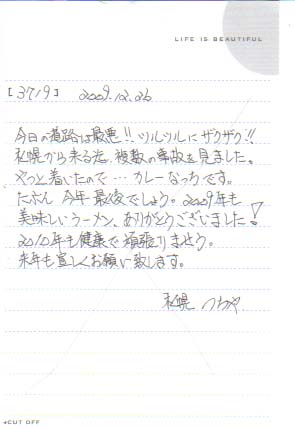 LIFE IS BEAUTIFUL
[3719] 2009.12.26
今日の道路は最悪!! ツルツルにザクザク!!
札幌から来る途、複数の事故を見ました。
やっと着いたので… カレーなっちです。
たぶん 今年最後でしょう。2009年も
美味しいラーメン、ありがとうございました!
2010年も健康で頑張りましょう。
来年も宜しくお願い致します。
札幌 つちや
*CUT OFF